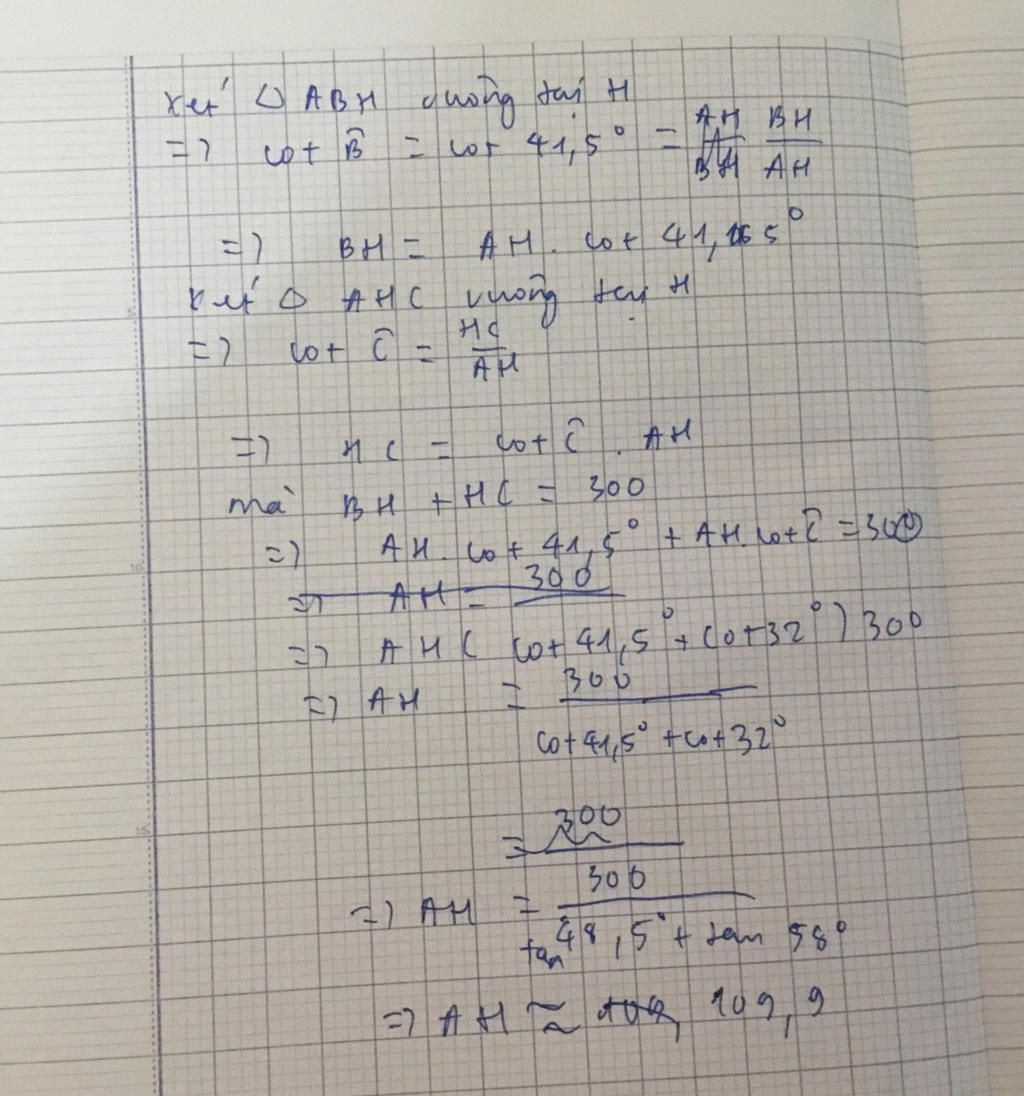 Xét △ ABH vuông tại H
=> cot B̂ = cot 41,5° = BH/AH
=> BH = AH. cot 41,5°
Xét △ AHC vuông tại H
=> cot Ĉ = HC/AH
=> HC = cot Ĉ . AH
mà BH + HC = 300
=> AH. cot 41,5° + AH. cot Ĉ = 300
=> AH = 300
=> AH ( cot 41,5° + cot 32° ) 300
=> AH = 300/cot 41,5° + cot 32°
= 300
=> AH = 300/tan 48,5° + tan 58°
=> AH ≈ 109,9